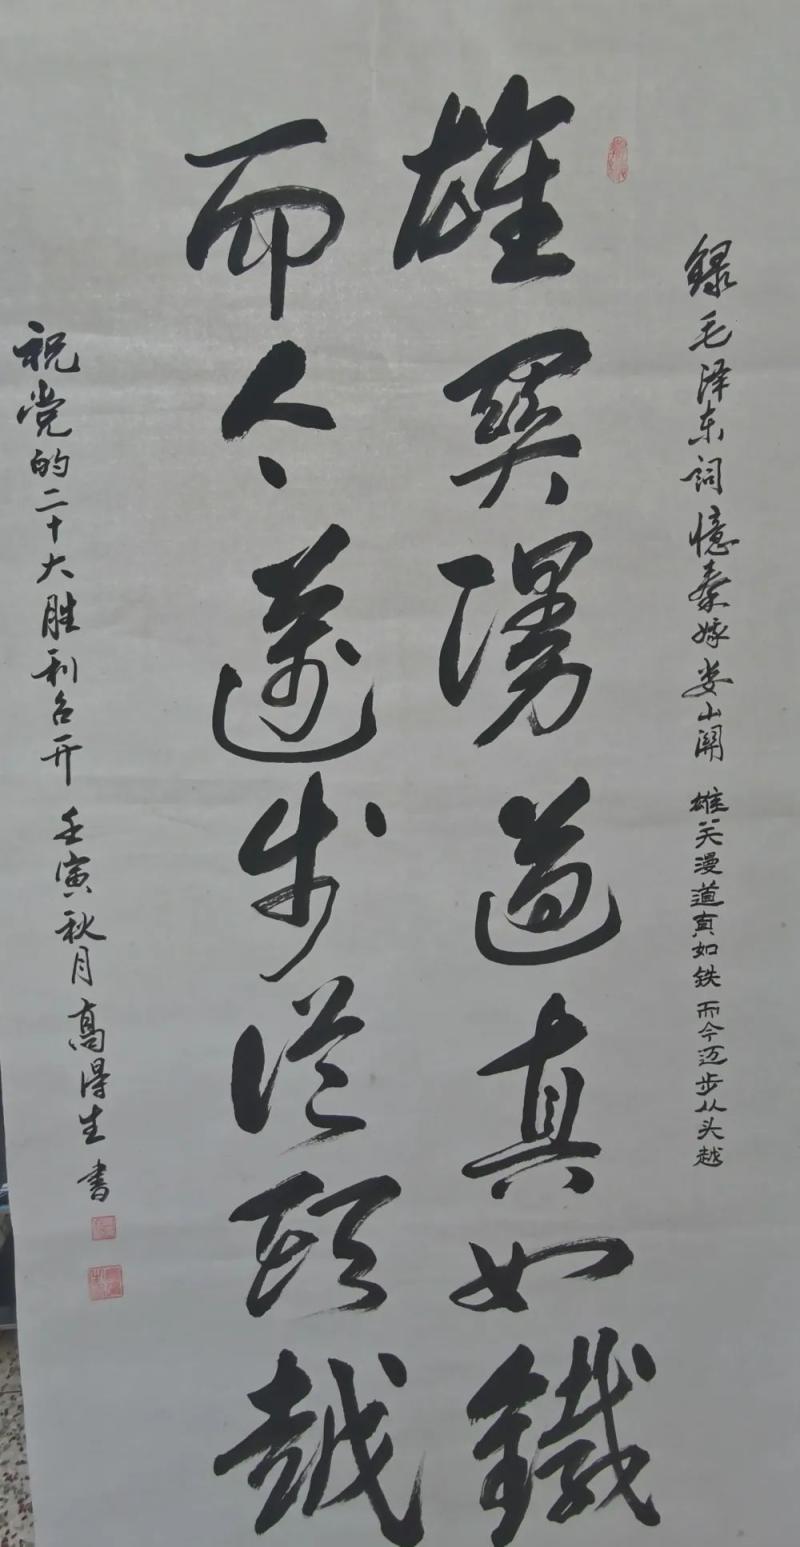 録毛泽东词憶秦嫁娄山関 雄关漫道真如铁 而今迈步从头越
雄関漫道真如鐵
而今邁步從頭越
祝党的二十大胜利召开 壬寅秋月 高得生 書